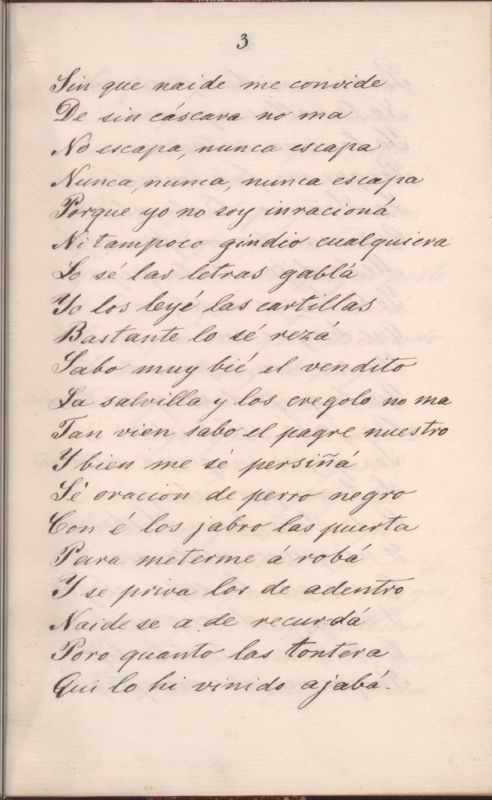 3
Sin que naide me convide
De sin cáscara no ma
No escapa, nunca escapa
Nunca, nunca, nunca escapa
Porque yo no soy inracioná
Ni tampoco gindio cualquiera
Lo sé las letras gablá
Yo los leyé las cartillas
Bastante lo sé rezá
Sabo muy bié el vendito
La salvilla y los cregolo no ma
Tan vien sabo el pagre nuestro
Y bien me sé persiñá
Sé oracion de perro negro
Con é los jabro las puerta
Para meterme á robá
Y se priva los de adentro
Naide se a de recurdá
Poro quanto las tontera
Qui lo hi vinido ajabá.